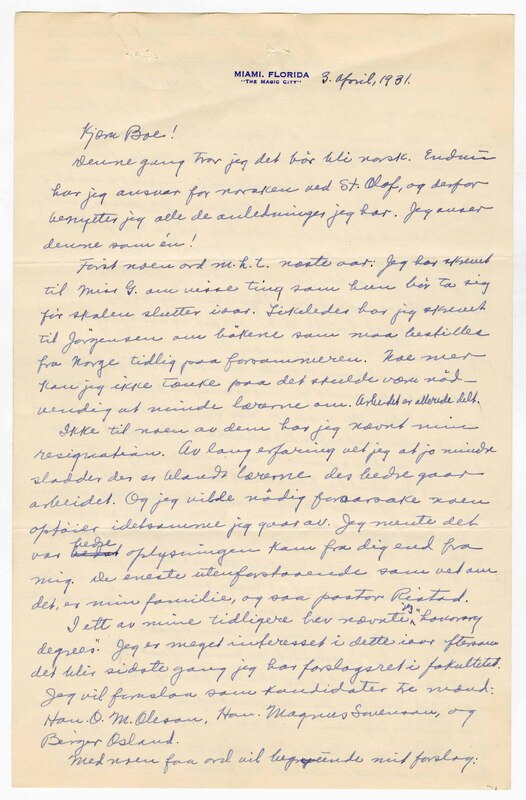 MIAMI, FLORIDA
"THE MAGIC CITY"
3. April, 1931.
Kjære Boe!
Denne gang tror jeg det bör bli norsk. Endnu
har jeg ansvar for norsken ved St. Olaf, og derfor
benytter jeg alle de anledninger jeg har. Jeg anser
denne som én!
Först noen ord m.h.t. næste aar: Jeg har skrevet
til Miss G. om visse ting som hun bör ta sig
för skolen slutter iaar. Likeledes har jeg skrevet
til Jörgensen om bökene som maa bestilles
fra Norge tidlig paa forsommeren. Noe mer
kan jeg ikke tænke paa det skulde være nöd-
vendig at minde lærerne om. Arbeidet er allerede delt.
Ikke til noen av dem har jeg nævnt min
resignation. Av lang erfaring vet jeg at jo mindre
sladder der er blandt lærerne des bedre gaar
arbeidet. Og jeg vilde nödig foraarsake noen
optöier idetsamme jeg gaar av. Jeg mente det
var bedre oplysningen kam fra dig end fra
mig. De eneste utenforstaaende som vet om
det, er min familie, og saa pastor Ristad.
I ett av mine tidligere brev nævnte jeg "honorary
degrees". Jeg er meget interesset i dette iaar eftersom
det blir sidste gang jeg har forslagsret i fakultetet.
Jeg vil foreslaa som kandidater tre mænd:
Hon. O. M. Oleson, Hon. Magnus Swenson, og
Birger Osland.
Med noen faa ord vil begrunde mit forslag: